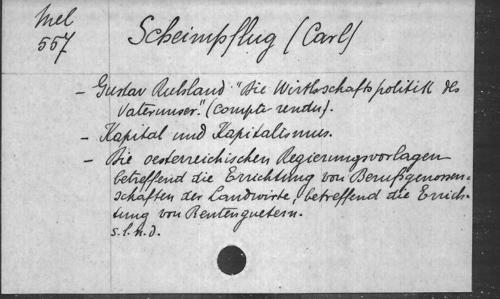 Mel
557
Scheimpflug (Carl)
- Gustav Ruhland "Die Wirthschaftspolitik des
Vaterunser." (compte rendu).
- Kapital und Kapitalismus.
- Die oesterreichischen Regierungsvorlagen
betreffend die Errichtung von Berufsgenossen-
schaften der Landwirte, betreffend die Errich-
tung von Rentenguetern.
s.l.n.d.